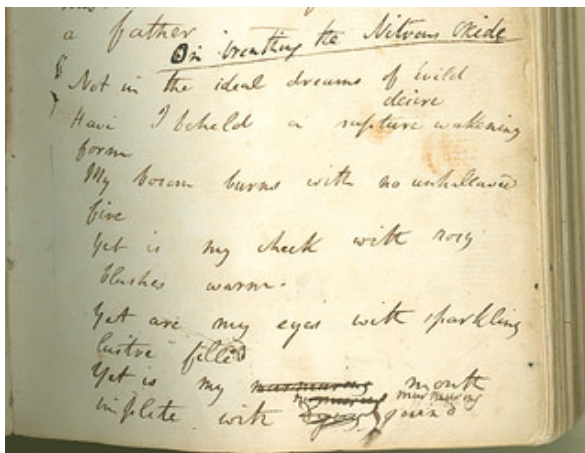 a father
On breathing the Nitrous Oxide
Not in the ideal dreams of wild
desire
Have I beheld a rapture wakening
form
My bosom burns with no unhallowed
fire
Yet is my cheek with rosy
blushes warm.
Yet are my eyes with sparkling
lustre filled
Yet is my murmuring mouth
murmuring
implete with sound